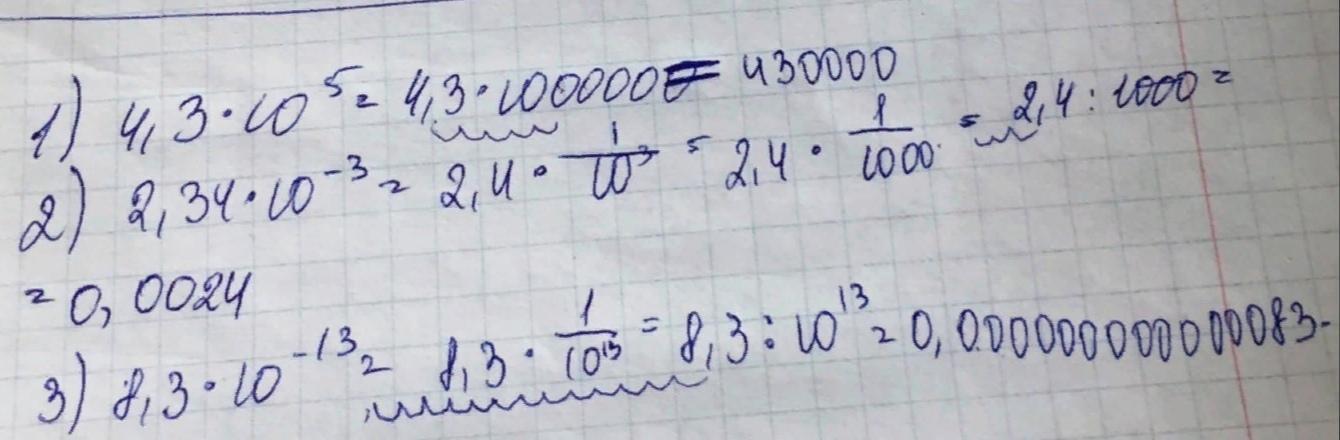 1) 4,3·10⁵ = 4,3·100000 = 430000
2) 2,34·10⁻³ = 2,4·1/10³ = 2,4·1/1000 = 2,4:1000 =
= 0,0024
3) 8,3·10⁻¹³ = 8,3·1/10¹³ = 8,3:10¹³ = 0,00000000000083